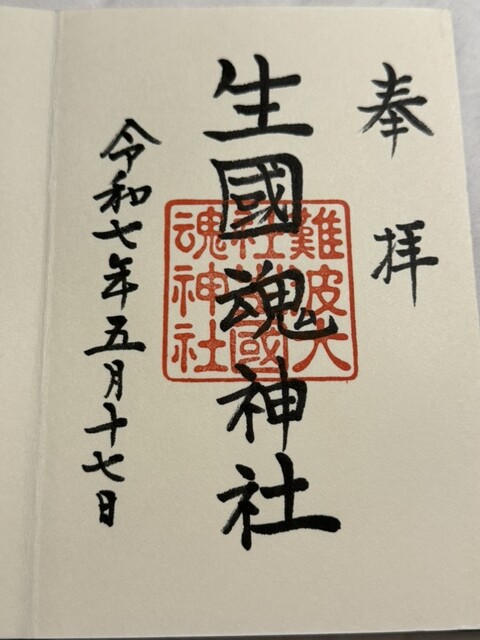 奉拝
生國魂神社
難波大
社生國
魂神社
令和七年五月十七日